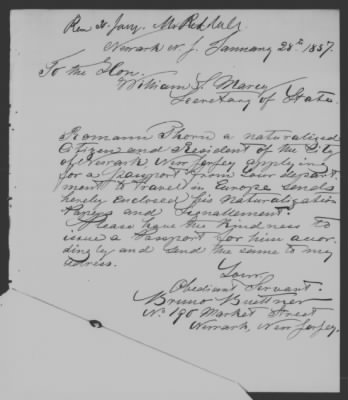 Newark N. J. January 28th 1857.
To the Hon.
William L. Marcy
Secretary of State.
Romann Thorn a naturalized
Citizen and Resident of the City
of Newark New Jersey applying
for a Passport from Your depart-
ment to travel in Europe sends
hereby enclosed his Naturalization
Papers and Signallement.
Please have the Kindness to
issue a Passport for him accor-
dingly and send the same to my
adress.
Your
Obedient Servant.
Bruno Buettner
No 190 Market Street
Newark, New Jersey.